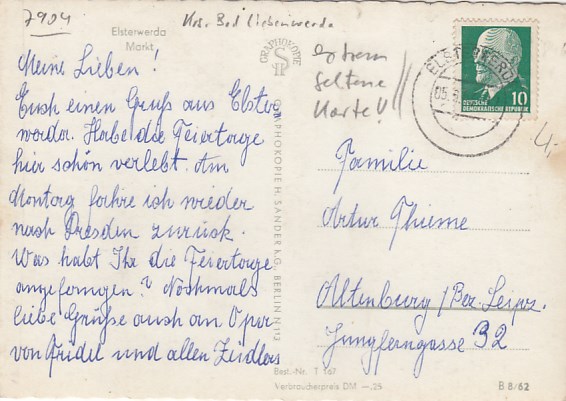 7904
Krs. Bad Liebenwerda
Elsterwerda
Markt
GRAPHOKOPIE
Extrem
seltene
Karte!!
ELSTERWERDA
05.
DEUTSCHE
DEMOKRATISCHE REPUBLIK
10
4,-
Meine Lieben!
Euch einen Gruß aus Elster
werda. Habe die Feiertage
hier schön verlebt. Am
Montag fahre ich wieder
nach Dresden zurück.
Was habt Ihr die Feiertage
angefangen? Nochmals
liebe Grüße auch an Opa
von Fridel und allen Zeidlers
GRAPHOKOPIE H. SANDER K.G., BERLIN N 113
Familie
Artur Thieme
Altenburg / Bez. Leipz.
Jungferngasse 32
Best.-Nr. T 567
Verbraucherpreis DM —,25
B 8/62